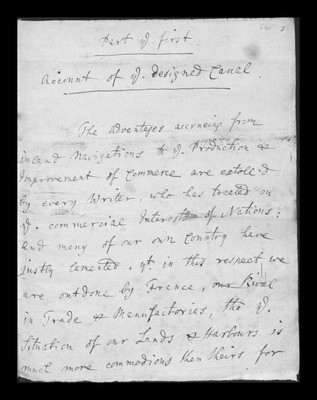 Part ye. first.
Account of ye. designed Canal.
The Advantages accrueing from
inland Navigations to ye. Production &
Improvement of Commerce are extoll'd
by every Writer, who has treated on
ye. commercial Interests of Nations:
and many of our own Country have
justly lamented, yt. in this respect we
are outdone by France, our Rival
in Trade & Manufactories, tho' ye.
Situation of our Lands & Harbours is
much more commodious then theirs for